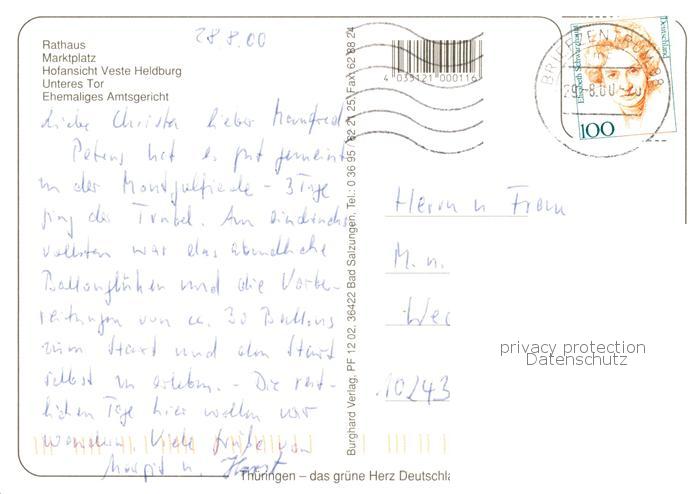 28 8.00
Rathaus
Marktplatz
Hofansicht Veste Heldburg
Unteres Tor
Ehemaliges Amtsgericht
Liebe Christa lieber Manfred
Petrus hat es gut gemeint
in der Montgolfiade – 3 Tage
ging der Trubel. Am eindrucks
vollsten war das abendliche
Ballonglühen und die Vorbe-
reitungen von ca. 30 Ballons
zum Start und den Start
selbst zu erleben. – Die rest-
lichen Tage hier wollen wir
wandern. Viele Grüße von
Margit u. Horst
Burghard Verlag, PF 12 02, 36422 Bad Salzungen, Tel.: 0 36 95 / 62 21 25, Fax: 62 88 24
4 035121 000116
BRIEFZENTRUM 98
29.-8.00-20
Elisabeth Schwarzhaupt
Deutschland
100
Herrn u Frau
M. u.
10243
privacy protection
Datenschutz
Thüringen – das grüne Herz Deutschla